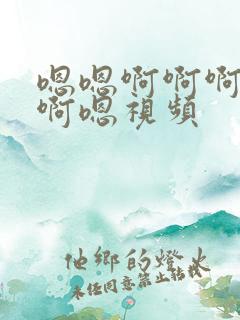 嗯嗯啊啊啊
啊嗯視頻
他鄉的燈火
未经同意禁止转载